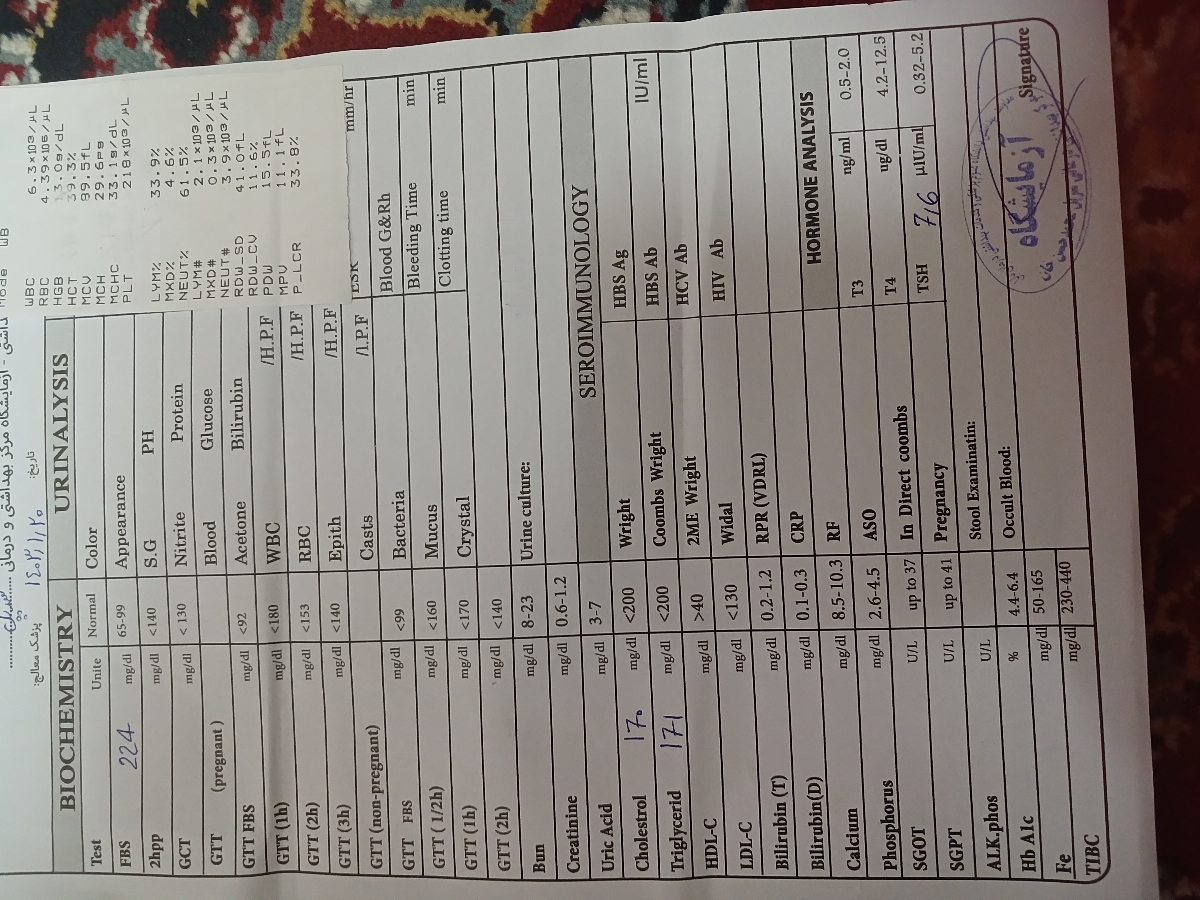 داشتی - آزمایشگاه مرکز بهداشتی و درمانی
پزشک معالج:
تاریخ: ۱۴۰۳/۱/۲۰
Mode WB
WBC 6.3×10³/μL
RBC 4.39×10⁶/μL
HGB 13.0g/dL
HCT 39.3%
MCV 89.5fL
MCH 29.6pg
MCHC 33.1g/dL
PLT 218×10³/μL
LYM% 33.9%
MXD% 4.6%
NEUT% 61.5%
LYM# 2.1×10³/μL
MXD# 0.3×10³/μL
NEUT# 3.9×10³/μL
RDW_SD 41.0fL
RDW_CV 11.6%
PDW 15.5fL
MPV 11.1fL
P_LCR 33.8%
BIOCHEMISTRY
Test Unite Normal
FBS 224 mg/dl 65-99
2hpp mg/dl <140
GCT mg/dl < 130
GTT (pregnant )
GTT FBS mg/dl <92
GTT (1h) mg/dl <180
GTT (2h) mg/dl <153
GTT (3h) mg/dl <140
GTT (non-pregnant)
GTT FBS mg/dl <99
GTT ( 1/2h) mg/dl <160
GTT (1h) mg/dl <170
GTT (2h) mg/dl <140
Bun mg/dl 8-23
Creatinine mg/dl 0.6-1.2
Uric Acid mg/dl 3-7
Cholestrol 170 mg/dl <200
Triglycerid 171 mg/dl <200
HDL-C mg/dl >40
LDL-C mg/dl <130
Bilirubin (T) mg/dl 0.2-1.2
Bilirubin(D) mg/dl 0.1-0.3
Calcium mg/dl 8.5-10.3
Phosphorus mg/dl 2.6-4.5
SGOT U/L up to 37
SGPT U/L up to 41
AlK.phos U/L
Hb A1c % 4.4-6.4
Fe mg/dl 50-165
TIBC mg/dl 230-440
URINALYSIS
Color
Appearance
S.G PH
Nitrite Protein
Blood Glucose
Acetone Bilirubin
WBC /H.P.F
RBC /H.P.F
Epith /H.P.F
Casts /I.P.F
Bacteria
Mucus
Crystal
Urine culture:
ESR mm/hr
Blood G&Rh
Bleeding Time min
Clotting time min
SEROIMMUNOLOGY
Wright HBS Ag
Coombs Wright HBS Ab IU/ml
2ME Wright HCV Ab
Widal HIV Ab
RPR (VDRL)
CRP HORMONE ANALYSIS
RF T3 ng/ml 0.5-2.0
ASO T4 ug/dl 4.2-12.5
In Direct coombs TSH 7/6 μIU/ml 0.32-5.2
Pregnancy
Stool Examinatin:
Occult Blood:
Signature
آزمایشگاه